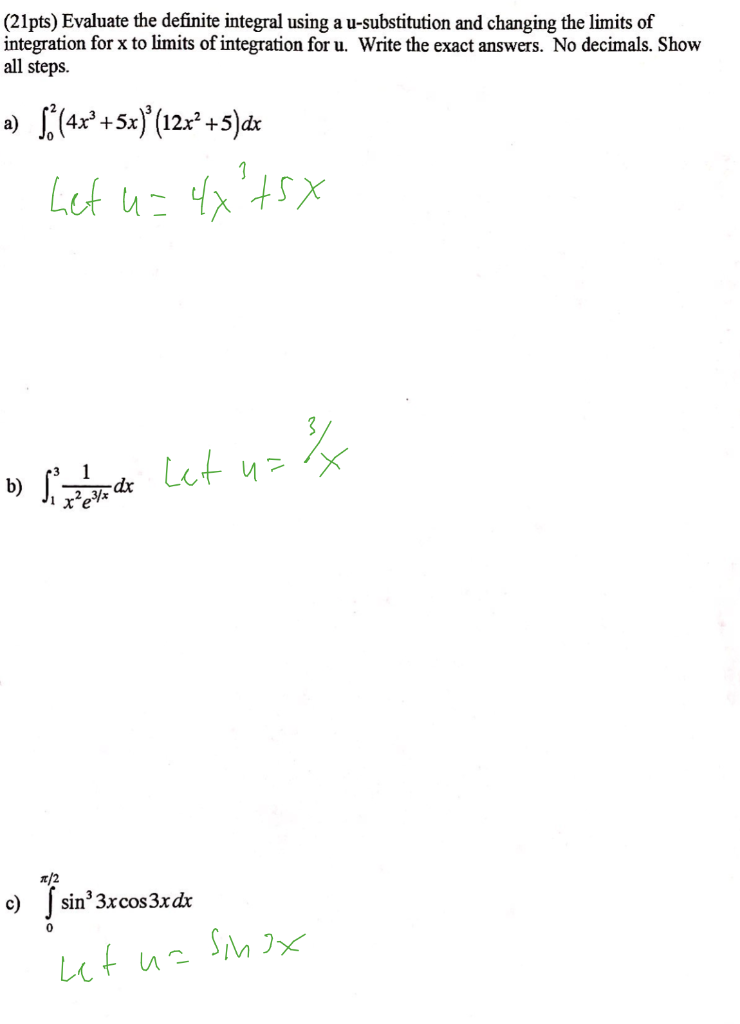 (21pts) Evaluate the definite integral using a u-substitution and changing the limits of
integration for x to limits of integration for u. Write the exact answers. No decimals. Show
all steps.
a) ∫₀²(4x³+5x)³(12x²+5)dx
Let u = 4x³+5x
b) ∫₁³ 1/(x²e^(3/x)) dx Let u = 3/x
c) ∫₀^(π/2) sin³3xcos3xdx
Let u = sin 3x